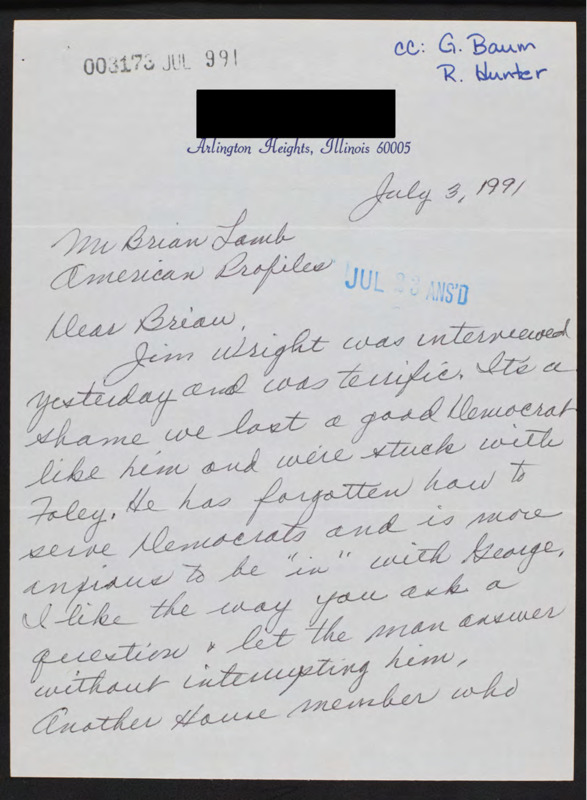 003173 JUL 991
cc: G. Baum
R. Hunter
Arlington Heights, Illinois 60005
July 3, 1991
Mr Brian Lamb
American Profiles
JUL 23 ANS'D
Dear Brian,
Jim Wright was interviewed
yesterday and was terrific. It's a
shame we lost a good Democrat
like him and we're stuck with
Foley. He has forgotten how to
serve Democrats and is more
anxious to be "in" with George.
I like the way you ask a
question & let the man answer
without interrupting him.
Another House member who